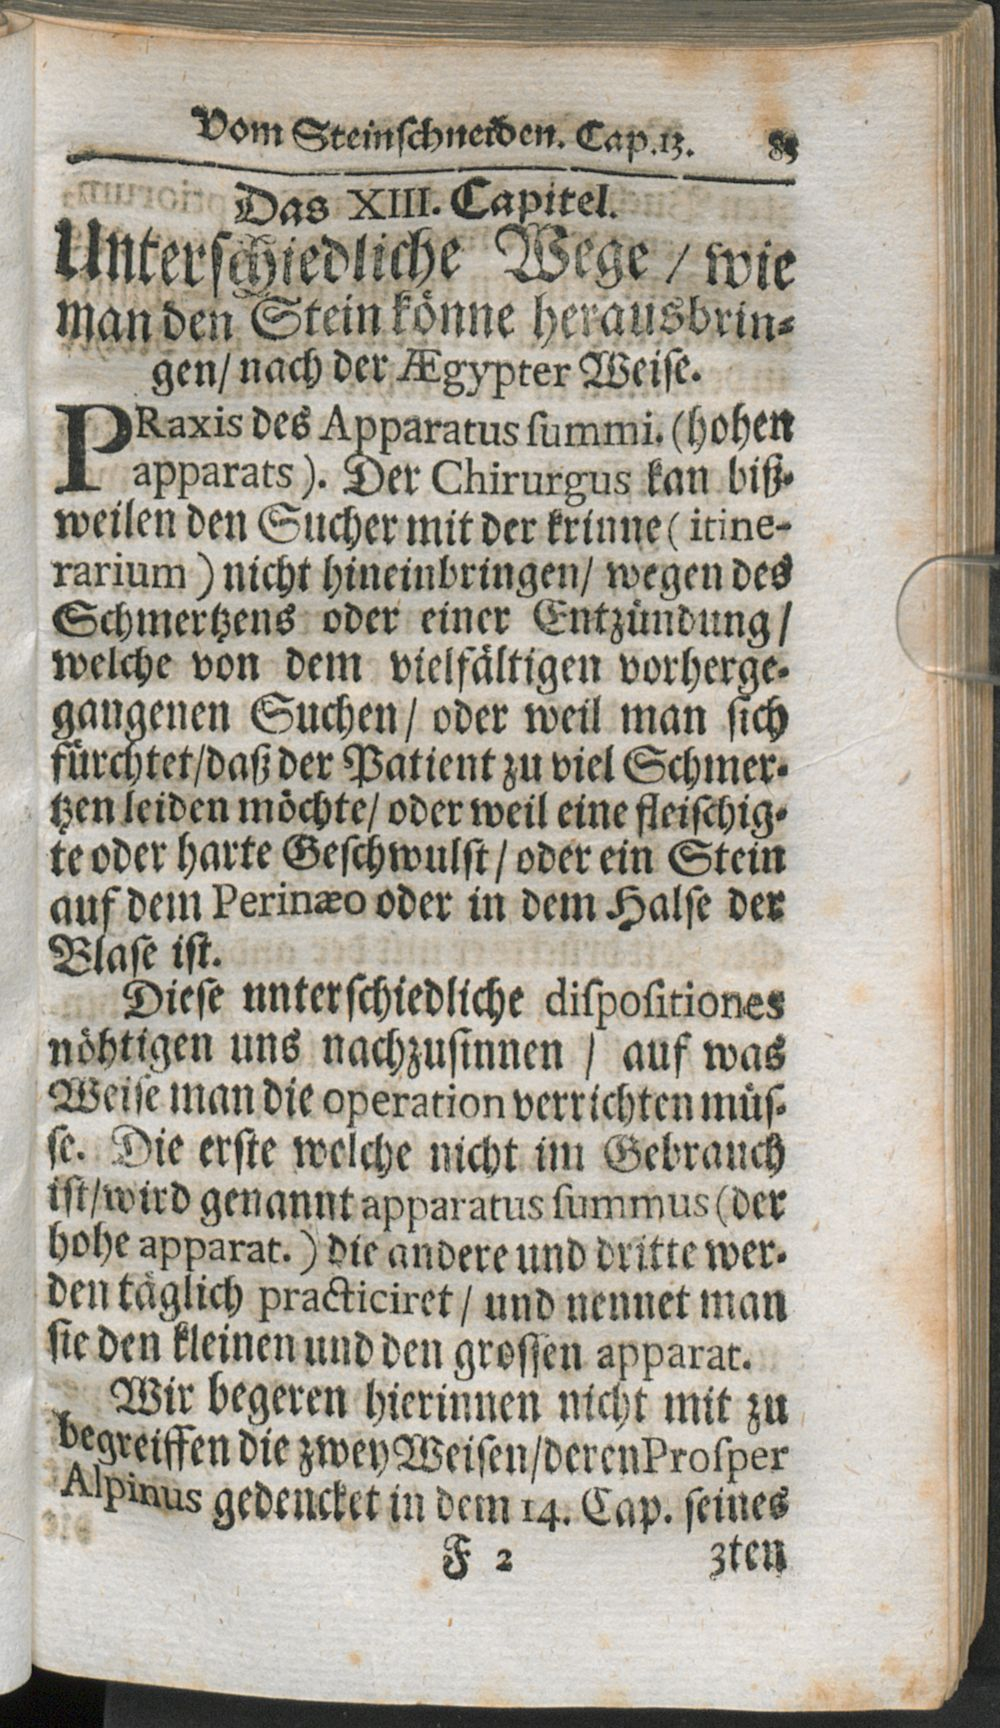 Vom Steinſchneiden. Cap. 13. 83
Das XIII. Capitel.
Unterſchiedliche Wege / wie
man den Stein könne herausbrin⸗
gen / nach der Ægypter Weiſe.
PRaxis des Apparatus ſummi. (hohen
apparats). Der Chirurgus kan biß⸗
weilen den Sucher mit der krinne (itine-
rarium) nicht hineinbringen / wegen des
Schmertzens oder einer Entzündung /
welche von dem vielfältigen vorherge⸗
gangenen Suchen / oder weil man ſich
fürchtet / daß der Patient zu viel Schmer⸗
tzen leiden möchte / oder weil eine fleiſchig⸗
te oder harte Geſchwulſt / oder ein Stein
auf dem Perinæo oder in dem Halſe der
Blaſe iſt.
Dieſe unterſchiedliche diſpoſitiones
nöhtigen uns nachzuſinnen / auf was
Weiſe man die operation verrichten müſ⸗
ſe. Die erſte welche nicht im Gebrauch
iſt / wird genannt apparatus ſummus (der
hohe apparat.) die andere und dritte wer⸗
den täglich practiciret / und nennet man
ſie den kleinen und den groſſen apparat.
Wir begeren hierinnen nicht mit zu
begreiffen die zwey Weiſen / deren Proſper
Alpinus gedencket in dem 14. Cap. ſeines
F 2 3ten